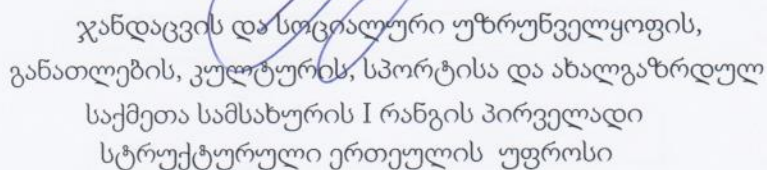 ჯანდაცვის და სოციალური უზრუნველყოფის,
განათლების, კულტურის, სპორტისა და ახალგაზრდულ
საქმეთა სამსახურის I რანგის პირველადი
სტრუქტურული ერთეულის უფროსი